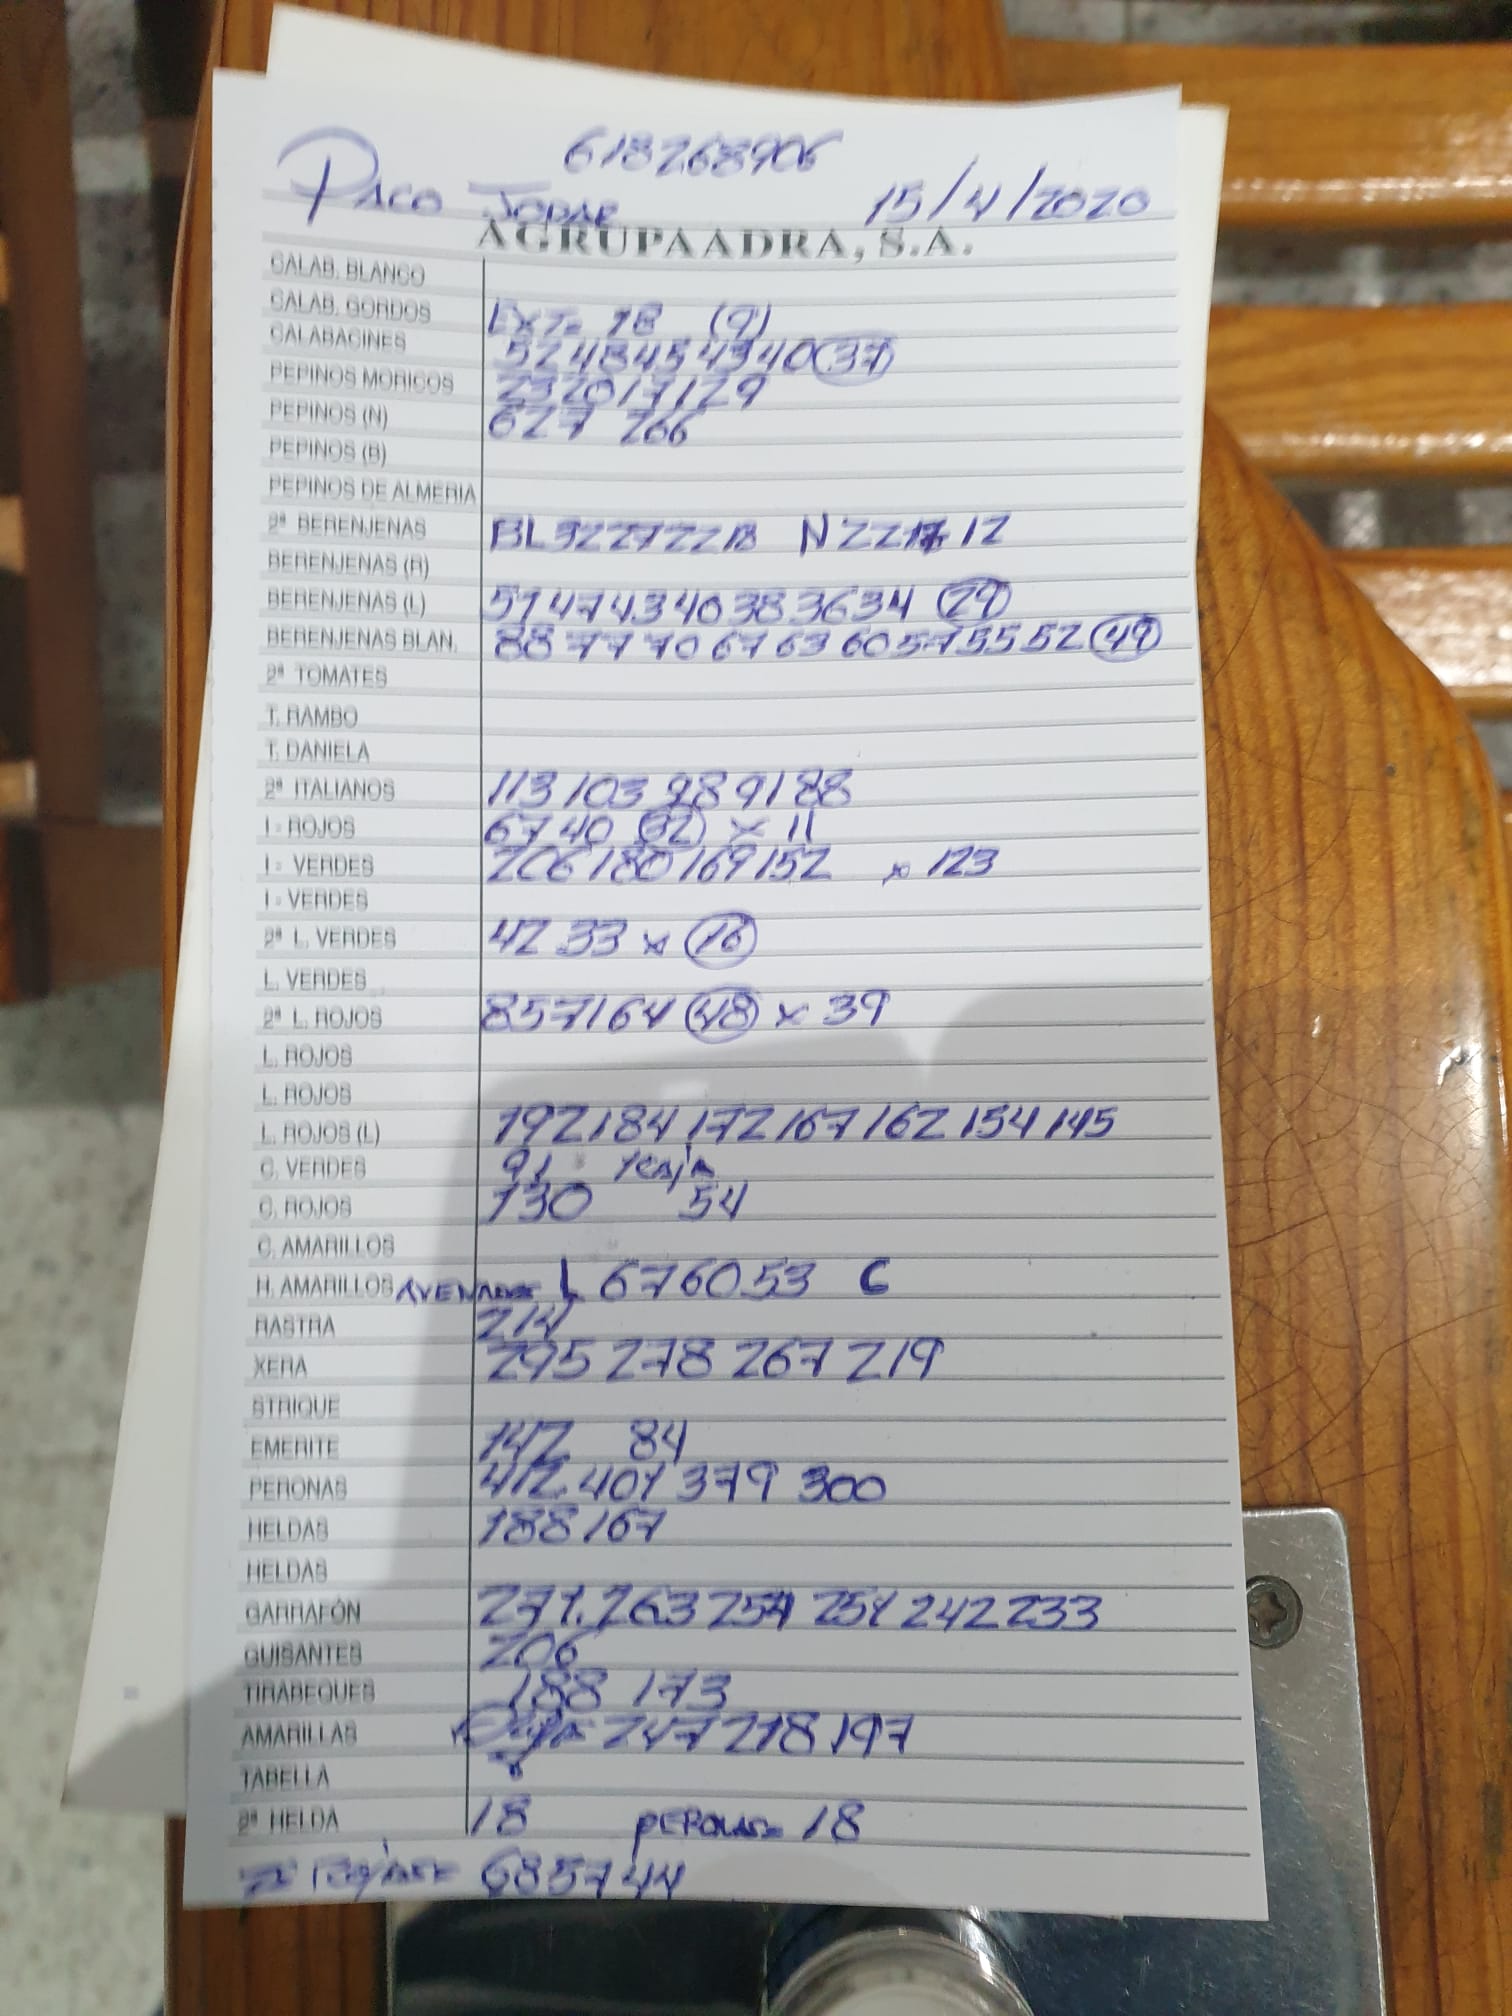 618268906
PACO JODAR 15/4/2020
AGRUPAADRA, S.A.
CALAB. BLANCO
CALAB. GORDOS EXT= 18 (9)
CALABACINES 5248454340 (37)
PEPINOS MORICOS 23201712 9
PEPINOS (N) 627 266
PEPINOS (B)
PEPINOS DE ALMERIA
2ª BERENJENAS BL 32272218 N 2217 12
BERENJENAS (R)
BERENJENAS (L) 51474340383634 (29)
BERENJENAS BLAN. 887770676360575552 (49)
2ª TOMATES
T. RAMBO
T. DANIELA
2ª ITALIANOS 113 103 98 91 88
I - ROJOS 67 40 (32) x 11
I - VERDES 206 180 169 152 x 123
I - VERDES
2ª L. VERDES 42 33 x (16)
L. VERDES
2ª L. ROJOS 857164 (48) x 39
L. ROJOS
L. ROJOS
L. ROJOS (L) 192 184 172 167 162 154 145
C. VERDES 91 1 caja
C. ROJOS 130 54
C. AMARILLOS
H. AMARILLOS L 676053 C
RASTRA 214
XERA 295 278 267 219
STRIQUE
EMERITE 142 84
PERONAS 412 401 379 300
HELDAS 188 167
HELDAS
GARRAFÓN 271 263 254 251 242 233
GUISANTES 206
TIRABEQUES 188 173
AMARILLAS 247 218 197
TABELLA
2ª HELDA 18 PERONAS= 18
685744